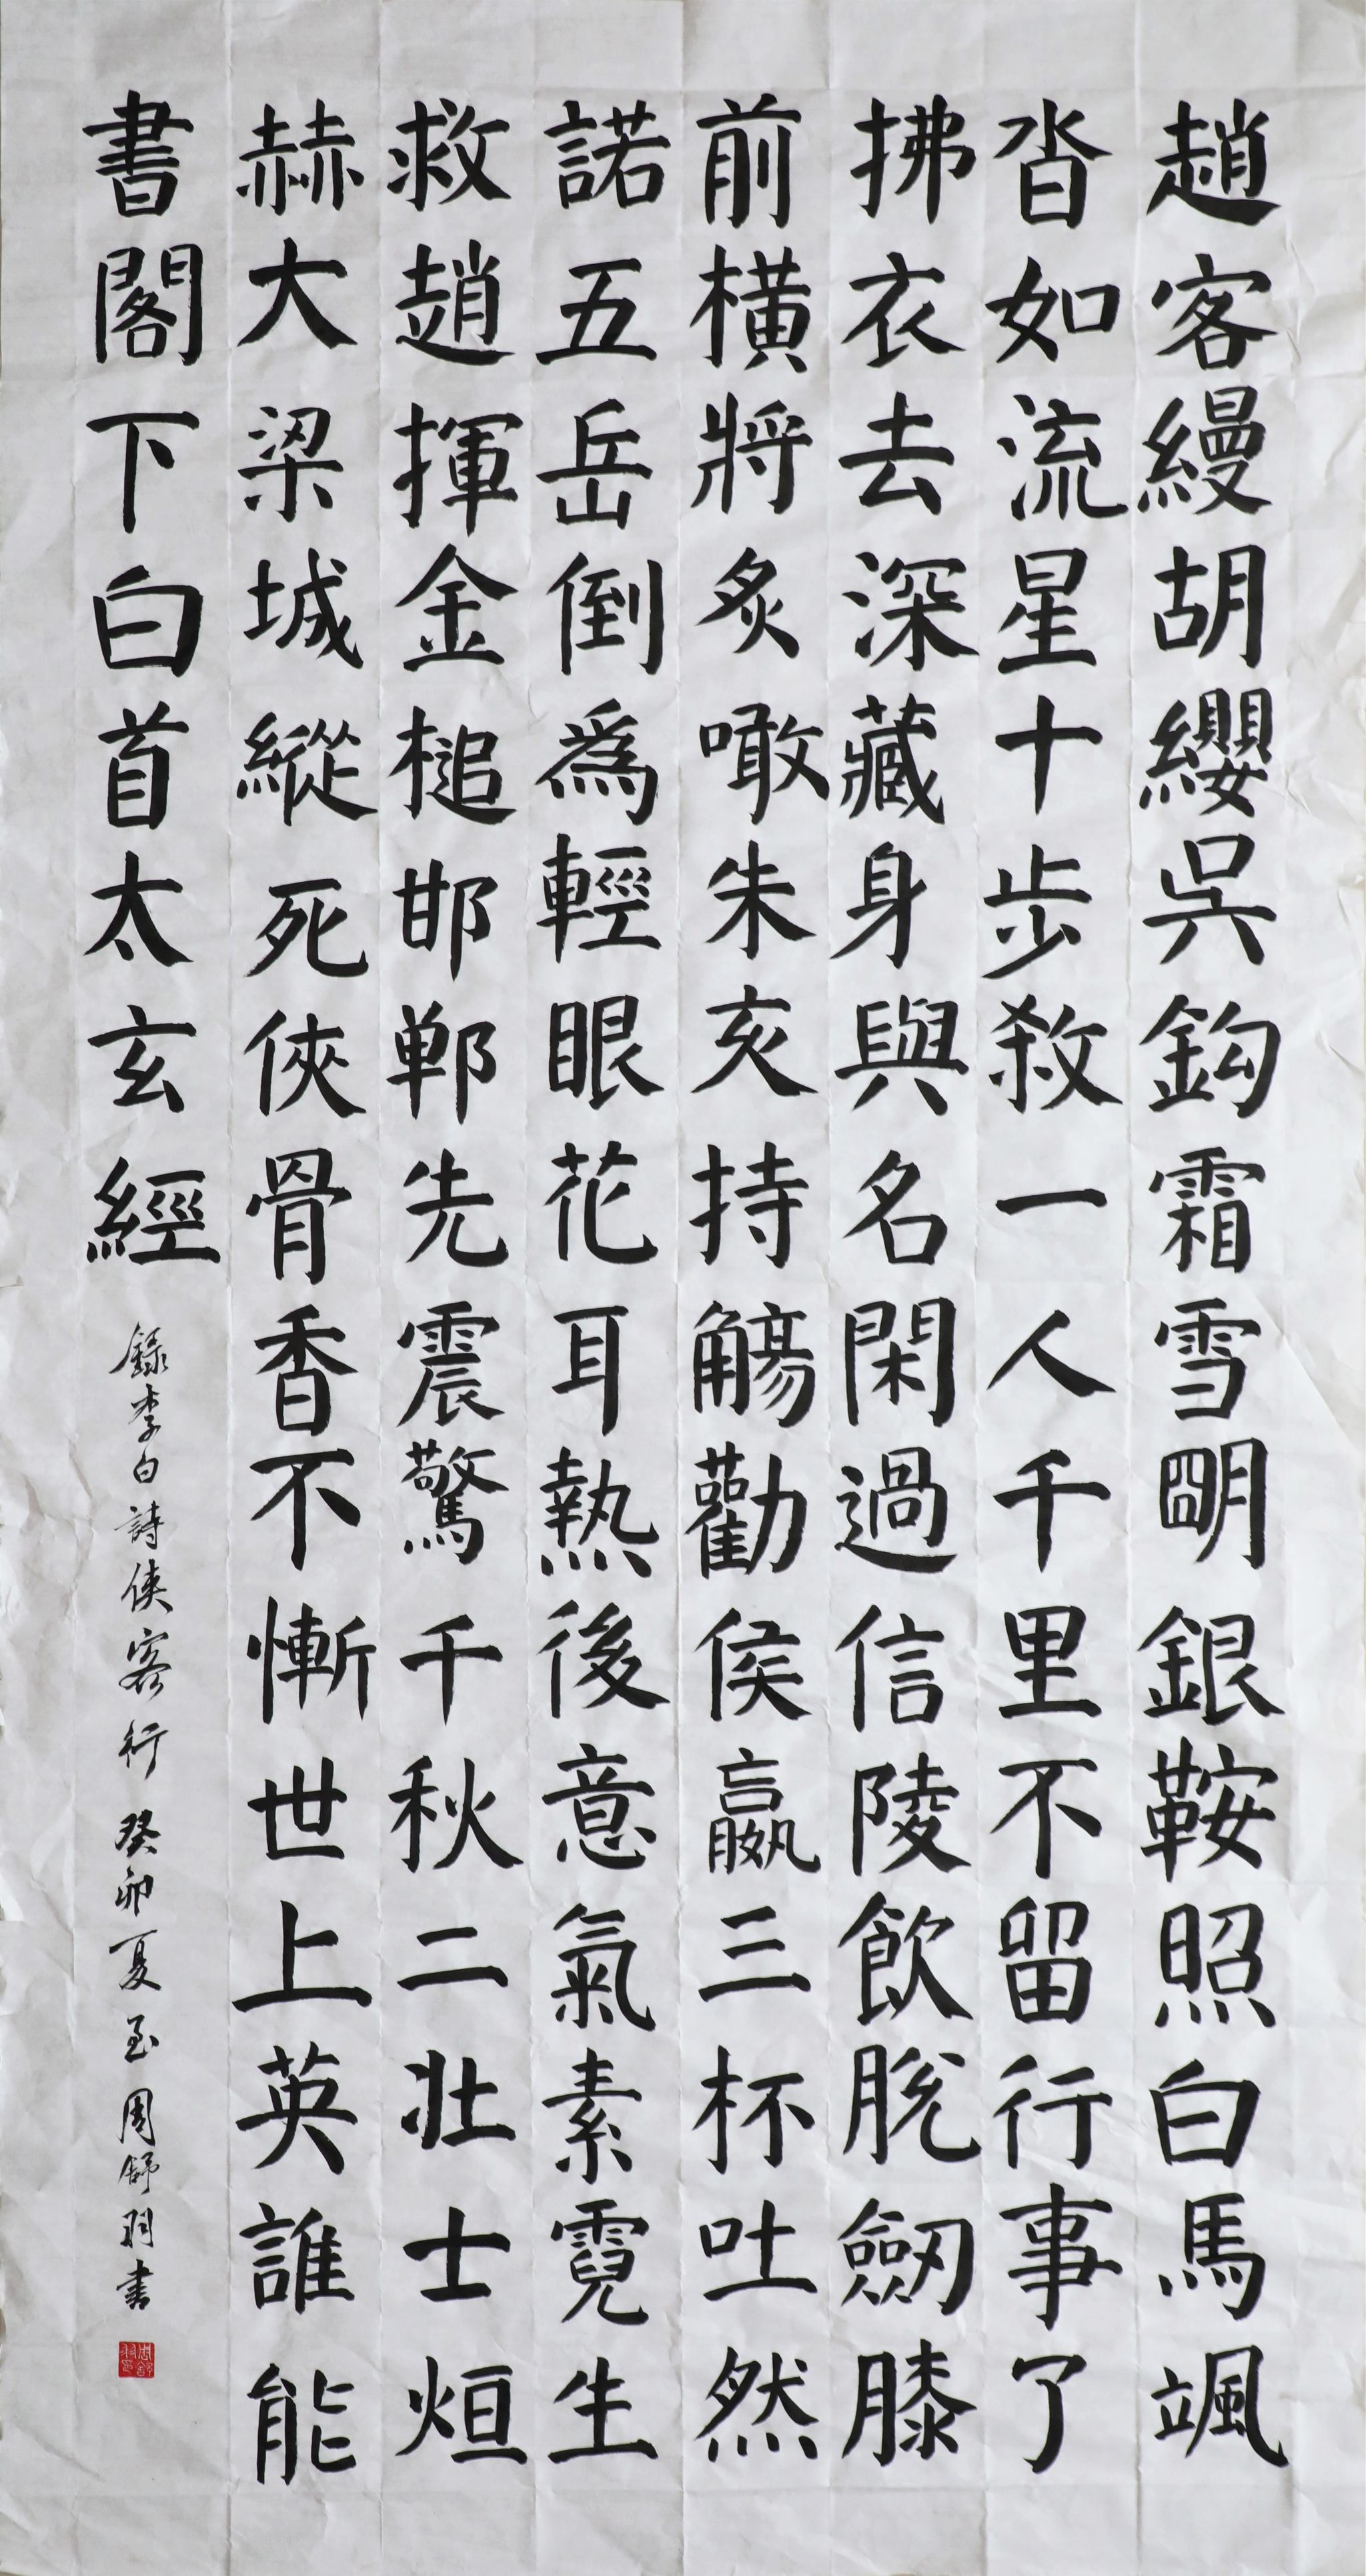 趙客縵胡纓吳鈎霜雪明銀鞍照白馬颯
沓如流星十步殺一人千里不留行事了
拂衣去深藏身與名閑過信陵飲脫劔膝
前橫將炙噉朱亥持觴勸侯嬴三杯吐然
諾五岳倒爲輕眼花耳熱後意氣素霓生
救趙揮金槌邯鄲先震驚千秋二壯士烜
赫大梁城縱死俠骨香不慚世上英誰能
書閣下白首太玄經
錄李白詩俠客行 癸卯夏至 周舒羽書